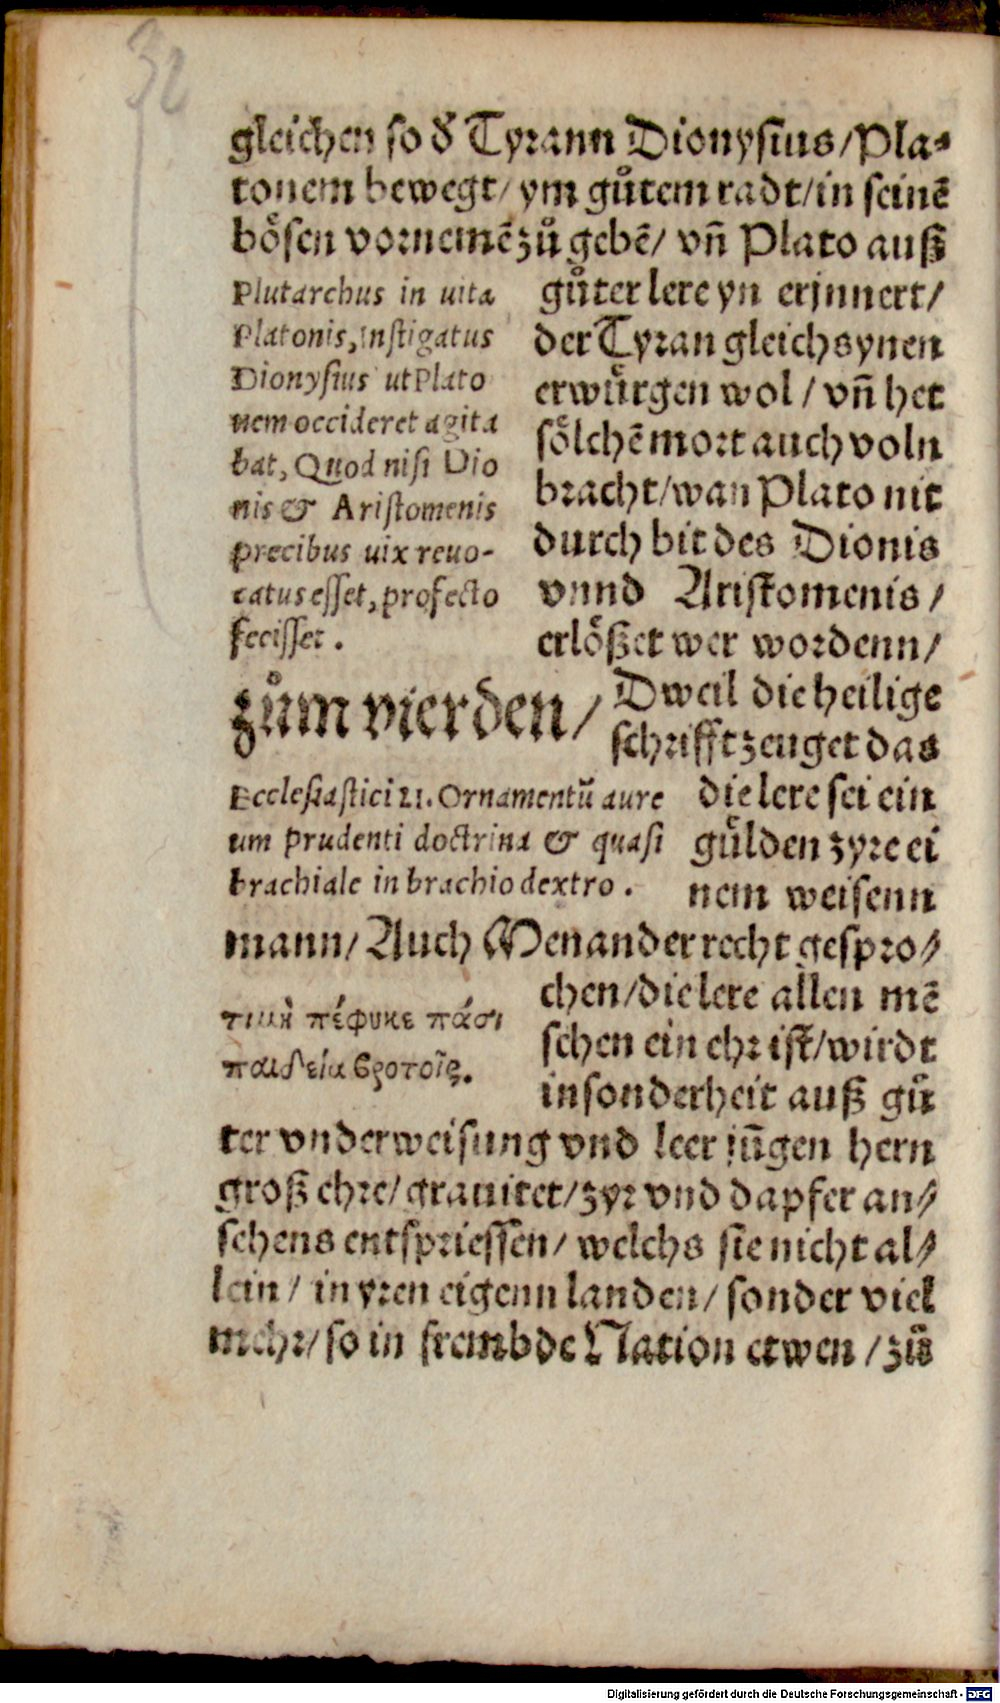 32
gleichen so d̕ Tyrann Dionysius/Pla⸗
tonem bewegt/ ym gůtem radt/in seinē
bösen vornemē zů gebē/ vñ Plato auß
gůter lere yn erjnnert/
der Tyran gleichs ynen
erwürgen wol / vñ het
sölchē mort auch voln
bracht/wan Plato nit
durch bit des Dionis
vnnd Aristomenis /
erlößet wer wordenn/
Plutarchus in uita
Platonis, Instigatus
Dionysius ut Plato
nem occideret agita
bat, Quod nisi Dio
nis & Aristomenis
precibus uix reuo-
catus esset, profecto
fecisset.
zům vierden/ Dweil die heilige
schrifft zeuget das
die lere sei ein
gülden zyre ei
nem weisenn
Ecclesiastici 21. Ornamentū aure
um prudenti doctrina & quasi
brachiale in brachio dextro.
mann/ Auch Menander recht gespro⸗
chen/die lere allen mē
schen ein ehr ist/wirdt
insonderheit auß gů
τιμὴ πέφυκε πάσι
παιδεία βροτοῖς.
ter vnderweisung vnd leer jūgen hern
groß ehre/ grauitet/zyr vnd dapfer an⸗
sehens entspriessen/ welchs sie nicht al⸗
lein / in yren eigenn landen/ sonder viel
mehr/so in frembde Nation etwen /zů
Digitalisierung gefördert durch die Deutsche Forschungsgemeinschaft - DFG